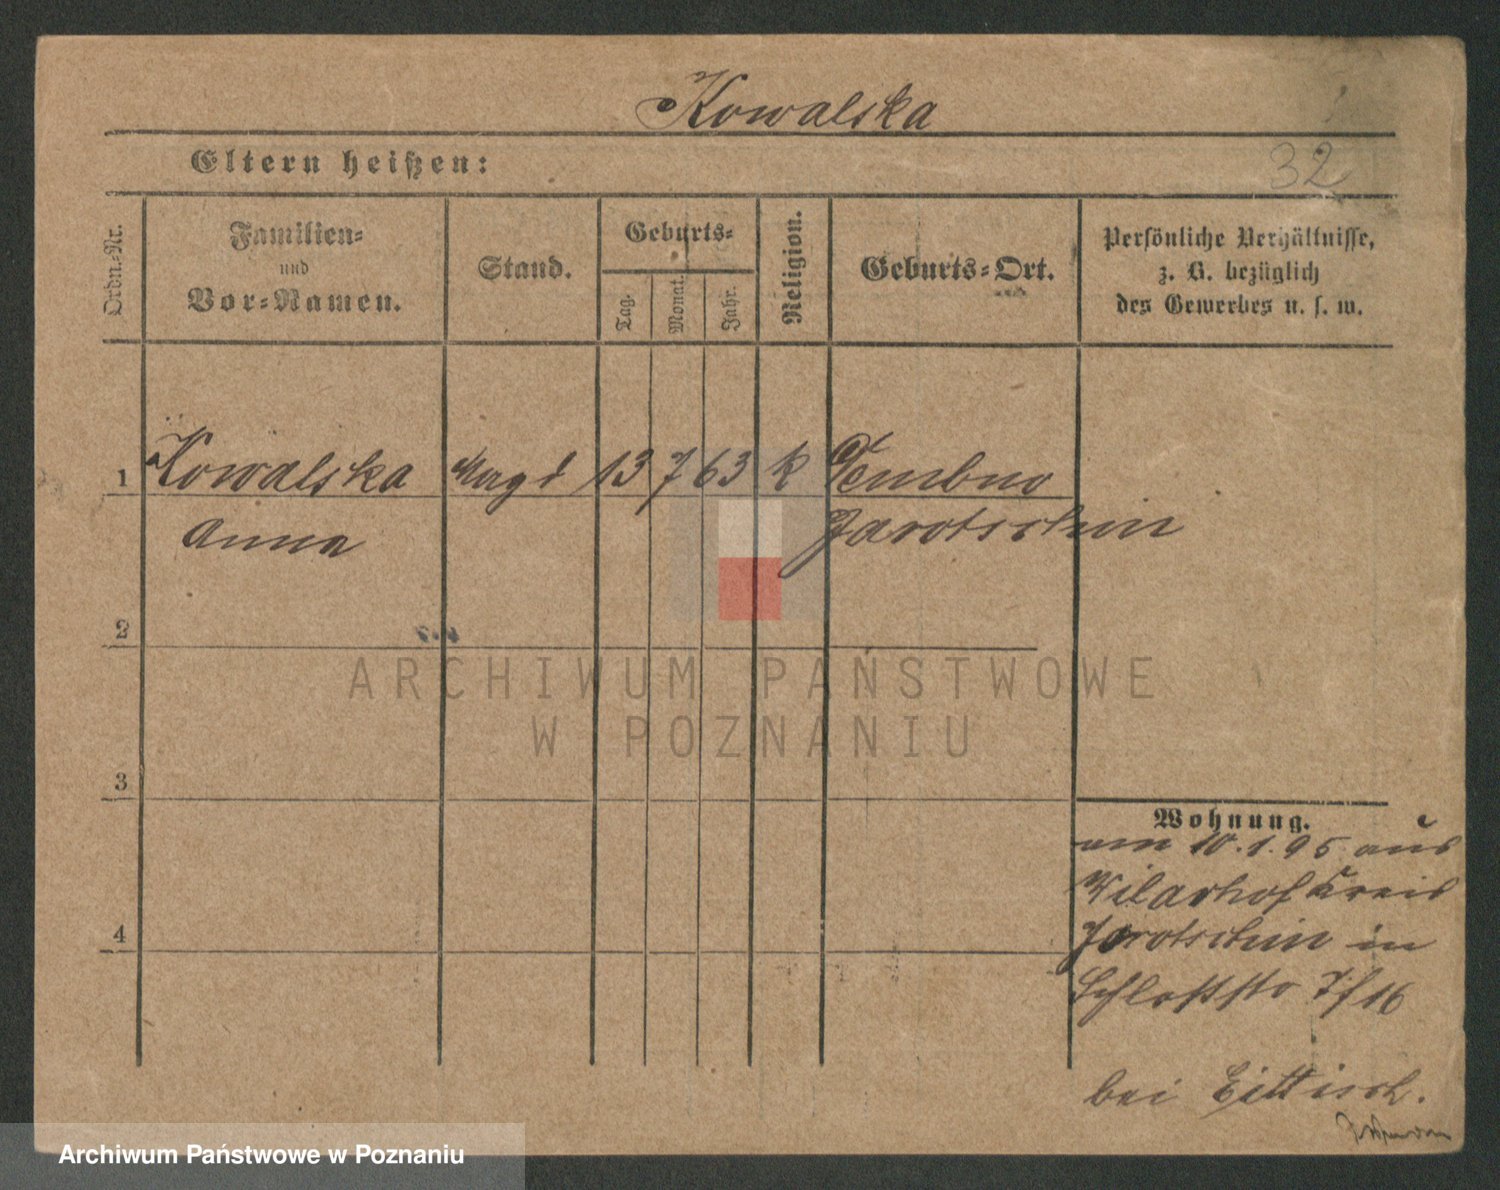 Kowalska
Eltern heißen:
32
Ordn.-Nr.
Familien-
und
Vor-Namen.
Stand.
Geburts-
Tag.
Monat.
Jahr.
Religion.
Geburts-Ort.
Persönliche Verhältnisse,
z. B. bezüglich
des Gewerbes u. s. w.
1 Kowalska Magd 13 7 63 k Dembno
Anna Jarotschin
2
ARCHIWUM PAŃSTWOWE
W POZNANIU
3
Wohnung.
am 10.1.95 aus
Wilarhof Kreis
Jarotschin in
4
Schloßstr 7/16
bei
Archiwum Państwowe w Poznaniu